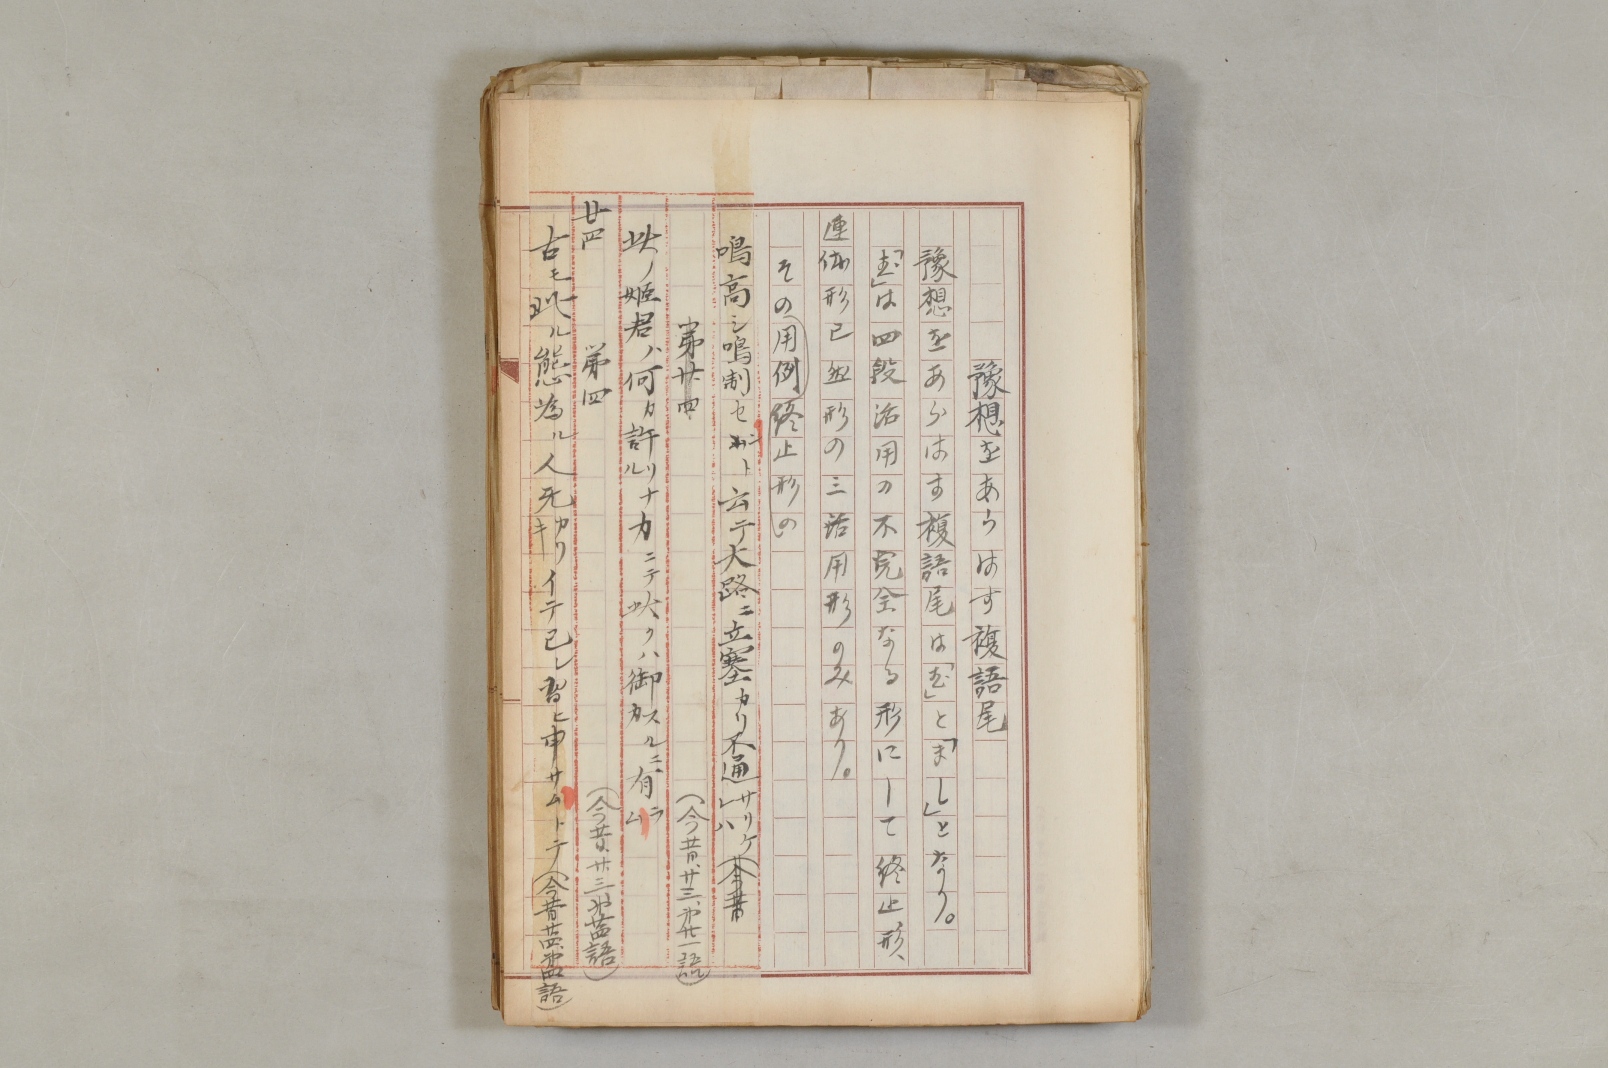 豫想をあらはす複語尾
豫想をあらはす複語尾は「む」と「まし」となり。
「む」は四段活用の不完全なる形にして終止形、
連体形已然形の三活用形のみあり。
その(用例)終止形の
鳴高シ鳴制セムト云テ大路ニ立塞カリ不通サリケレハ(今昔
第廿四
(今昔、廿三、第廿一語)
此ノ姫君ハ何カ許ルリナカニテ此クハ御カスルニ有ラム
廿四 第四
(今昔、廿三、第廿四語)
古モ此ル態為ル人死カリキイテ已レ習ヒ申サムトテ(今昔廿四、第四語)